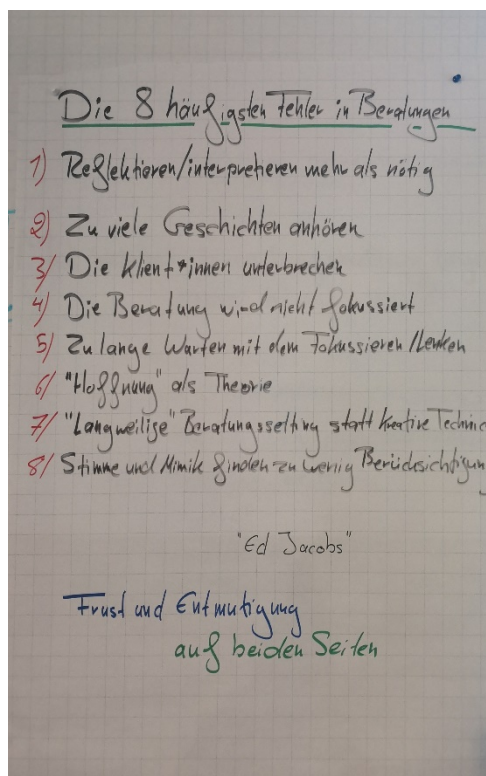 Die 8 häufigsten Fehler in Beratungen
1) Reflektieren/interpretieren mehr als nötig
2) Zu viele Geschichten anhören
3) Die Klient*innen unterbrechen
4) Die Beratung wird nicht fokussiert
5) Zu lange Warten mit dem Fokussieren/Lenken
6) "Hoffnung" als Theorie
7) "Langweilige" Beratungssetting statt kreative Technik
8) Stimme und Mimik finden zu wenig Berücksichtigun
"Ed Jacobs"
Frust und Entmutigung
auf beiden Seiten